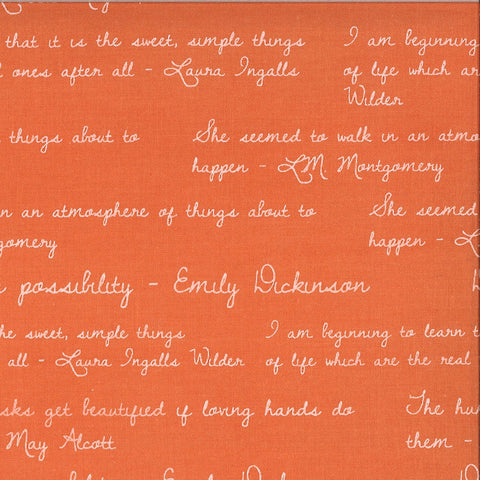 that it is the sweet, simple things I am beginning
ones after all - Laura Ingalls of life which
Wilder
things about to She seemed to walk in an
happen - L.M. Montgomery
in an atmosphere of things about to She seemed
happen -
possibility - Emily Dickinson
the sweet, simple things I am beginning to learn
all - Laura Ingalls Wilder of life which are the real
get beautified if loving hands do The
May Alcott them -